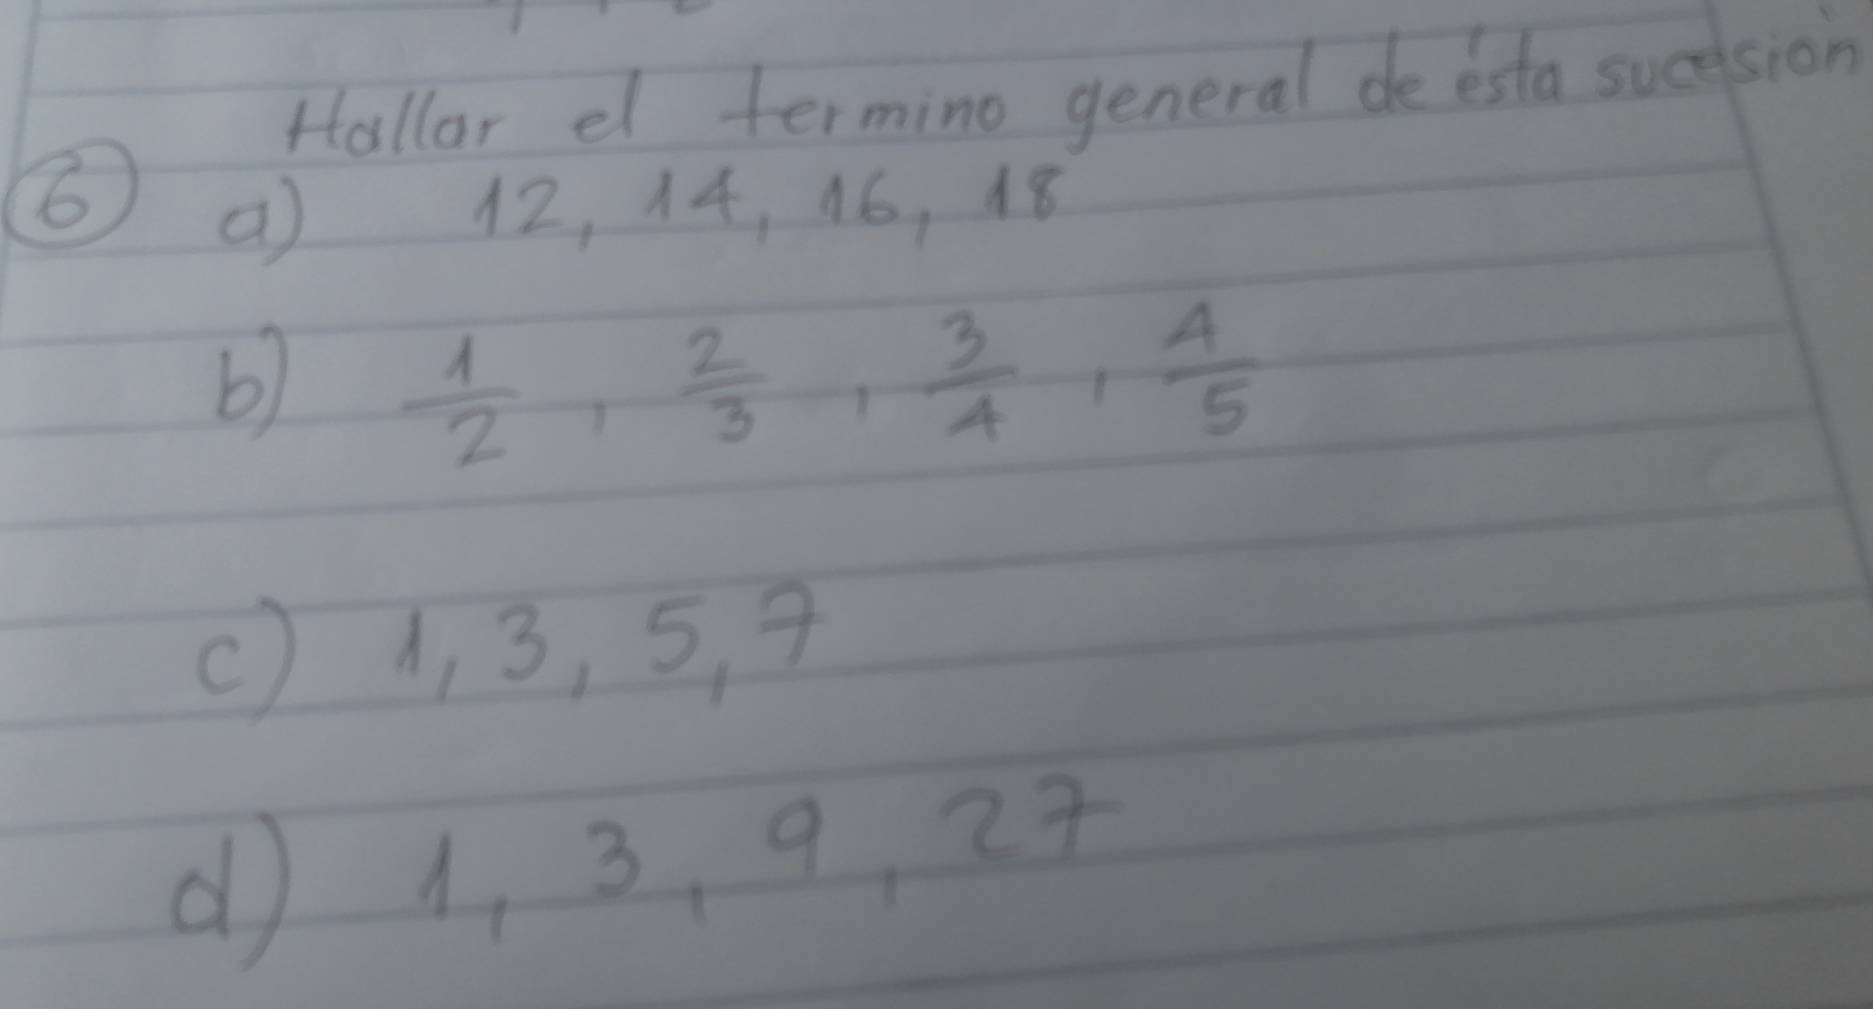 Hallar el termino general de ésta sucesion
6 a) 12, 14, 16, 18
b) 1/2, 2/3, 3/4, 4/5
c) 1, 3, 5, 7
d) 1, 3, 9, 27